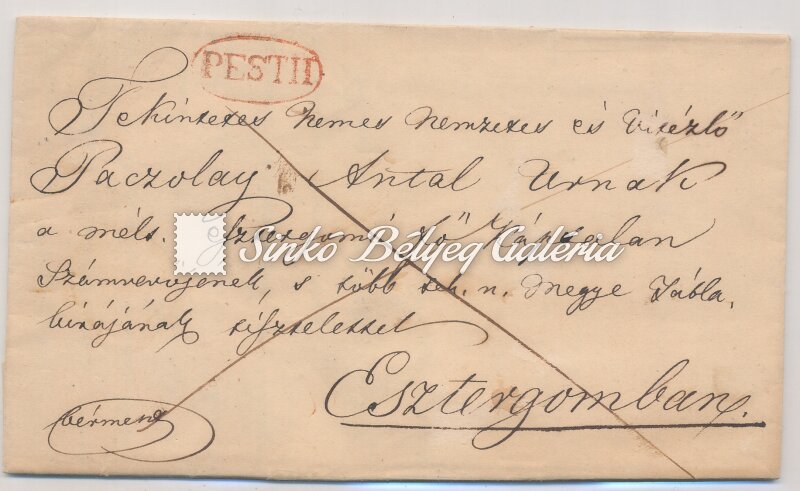 PESTH
Tekintetes Nemes Nemzetes és Vitézlő
Paczolay Antal Urnak
a mélt. Esztergomi Fő Káptalan
Sinkó Bélyeg Galéria
Számvevőjének, s több tek. n. Megye Tábla
birájának tisztelettel
Esztergomban.
bérmentve